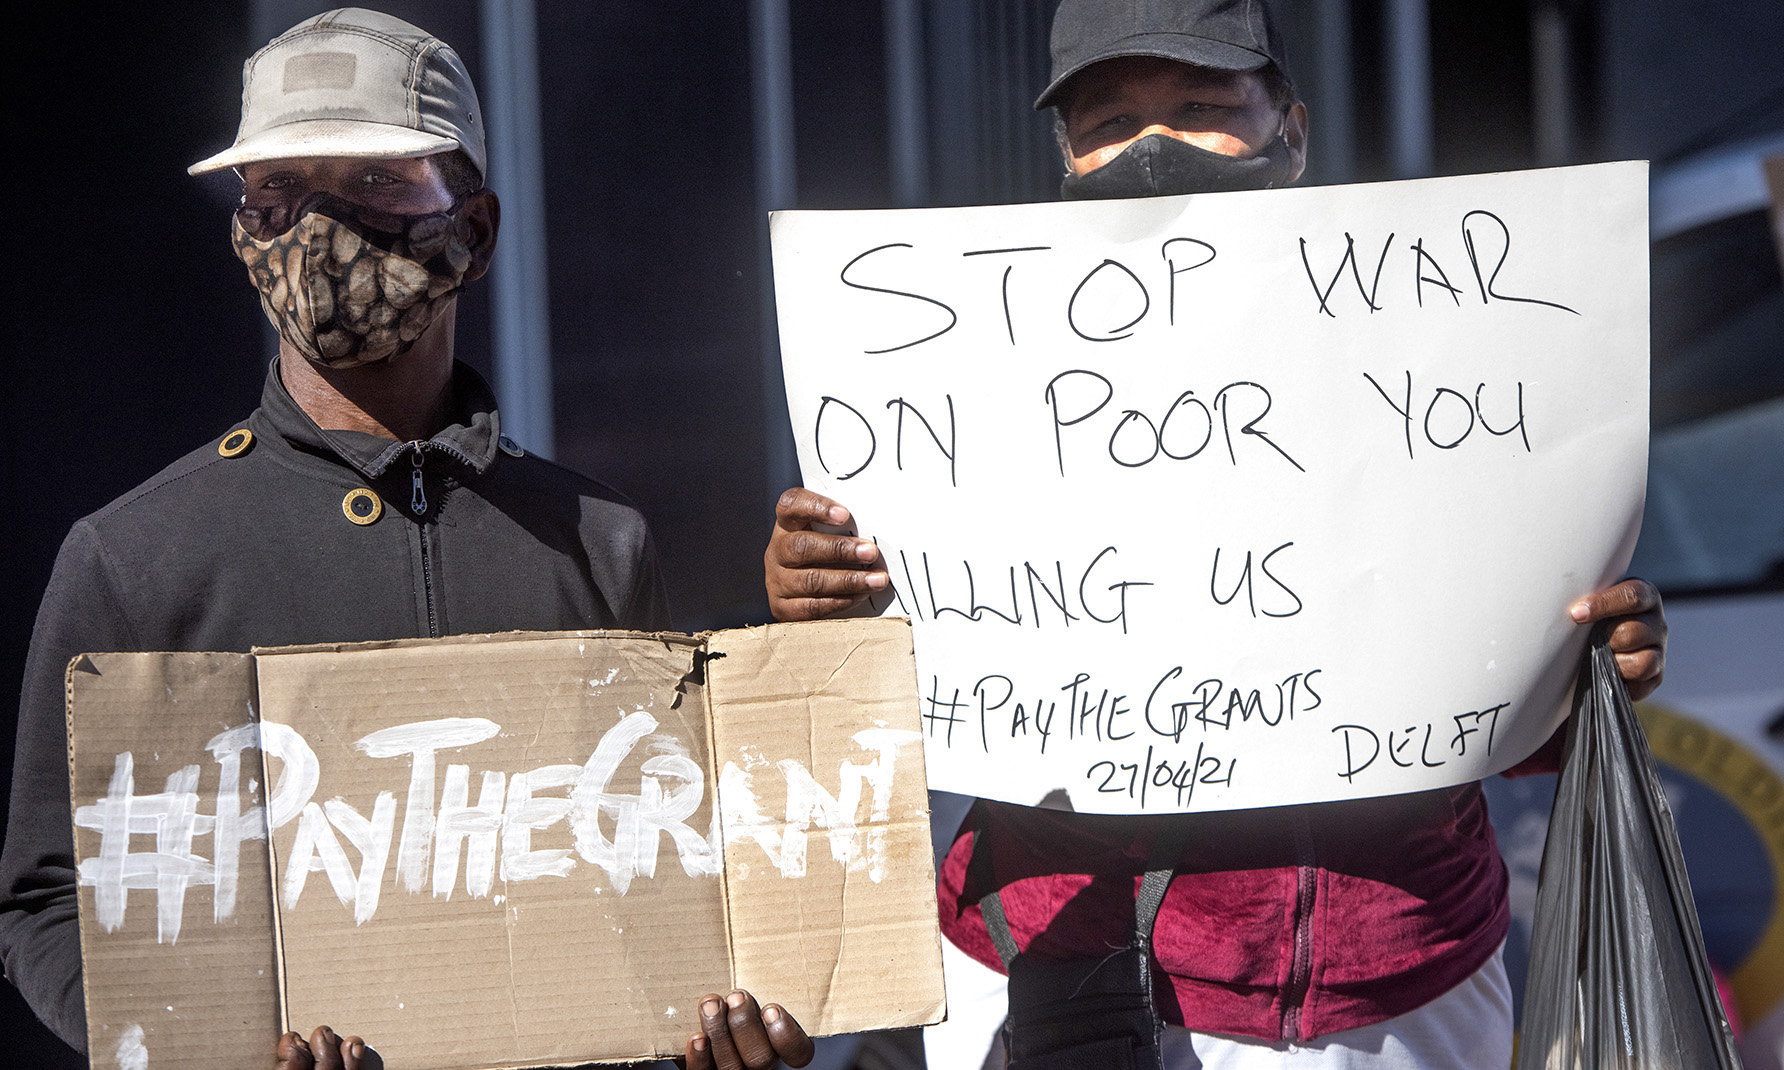 #PAYTHEGRANT
STOP WAR
ON POOR YOU
KILLING US
#PAYTHEGRANTS
27/04/21 DELFT